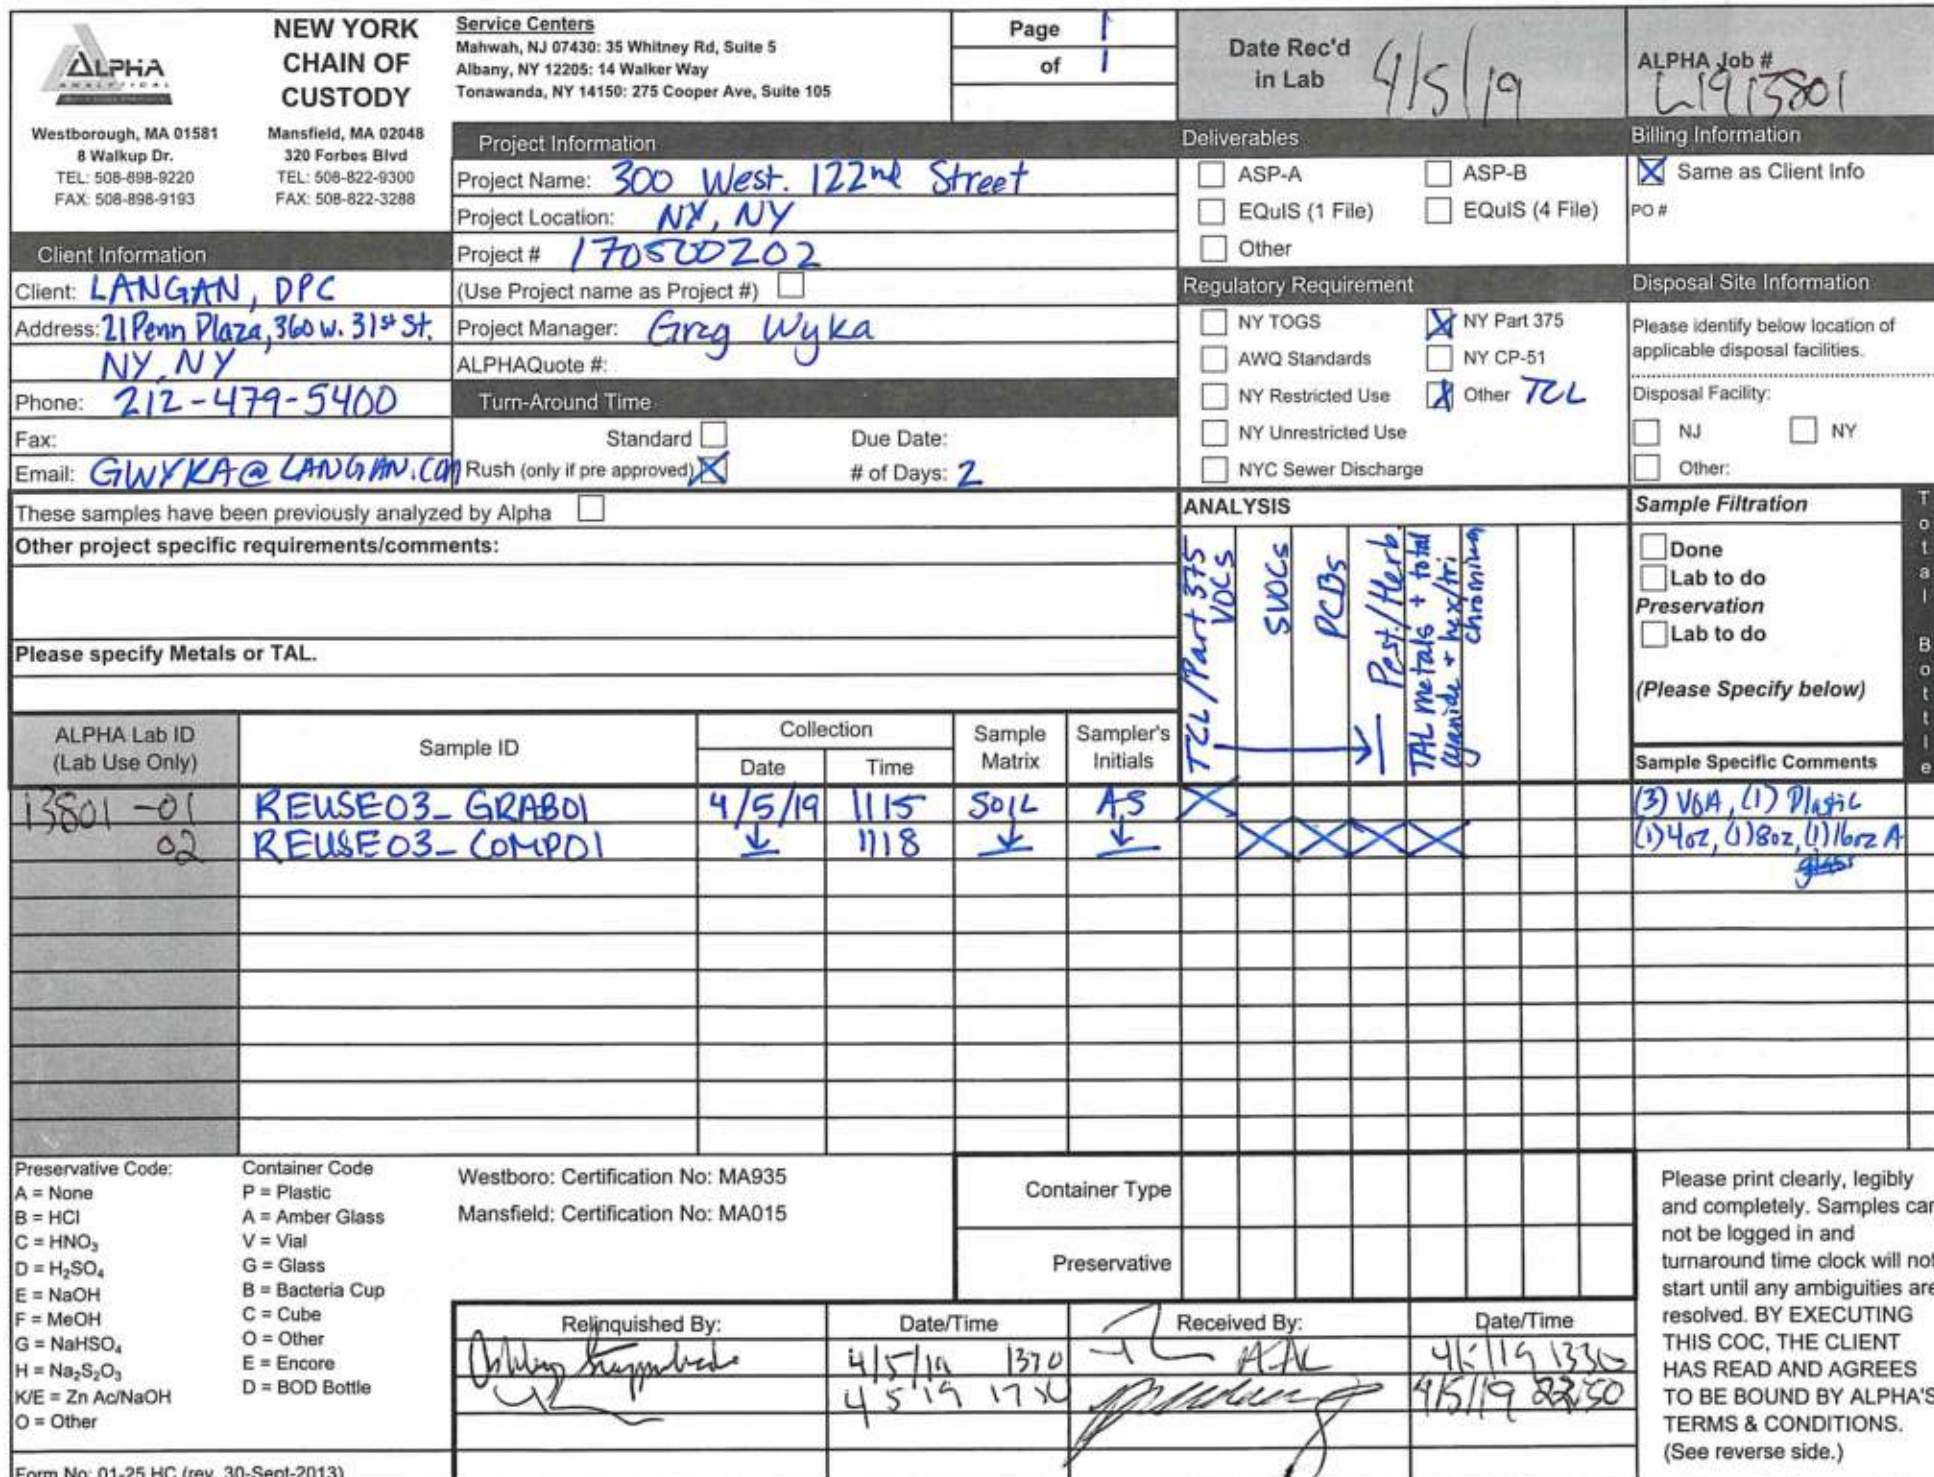 ALPHA
ANALYTICAL
NEW YORK
CHAIN OF
CUSTODY
Westborough, MA 01581
8 Walkup Dr.
TEL: 508-898-9220
FAX: 508-898-9193
Mansfield, MA 02048
320 Forbes Blvd
TEL: 508-822-9300
FAX: 508-822-3288
Service Centers
Mahwah, NJ 07430: 35 Whitney Rd, Suite 5
Albany, NY 12205: 14 Walker Way
Tonawanda, NY 14150: 275 Cooper Ave, Suite 105
Page 1
of 1
Date Rec'd
in Lab 4/5/19
ALPHA Job #
L1913801
Client Information
Client: LANGAN, DPC
Address: 21 Penn Plaza, 360 W. 31st St.
NY, NY
Phone: 212-479-5400
Fax:
Email: GWYKA@LANGAN.COM
Project Information
Project Name: 300 West. 122nd Street
Project Location: NY, NY
Project # 170500202
(Use Project name as Project #)
Project Manager: Greg Wyka
ALPHAQuote #:
Turn-Around Time
Standard Due Date:
Rush (only if pre approved) X # of Days: 2
Deliverables
ASP-A ASP-B
EQuIS (1 File) EQuIS (4 File)
Other
Regulatory Requirement
NY TOGS X NY Part 375
AWQ Standards NY CP-51
NY Restricted Use X Other TCL
NY Unrestricted Use
NYC Sewer Discharge
Billing Information
X Same as Client Info
PO #
Disposal Site Information
Please identify below location of
applicable disposal facilities.
Disposal Facility:
NJ NY
Other:
These samples have been previously analyzed by Alpha
Other project specific requirements/comments:
Please specify Metals or TAL.
ANALYSIS
TCL/Part 375
VOCs
SVOCs
PCBs
Pest./Herb
TAL metals + total
cyanide + hex/tri
chromium
Sample Filtration
Done
Lab to do
Preservation
Lab to do
(Please Specify below)
Total Bottle
ALPHA Lab ID
(Lab Use Only)
Sample ID
Collection
Date Time
Sample
Matrix
Sampler's
Initials
Sample Specific Comments
13801 -01 REUSE03_GRAB01 4/5/19 1115 SOIL AS X (3) VOA, (1) Plastic
02 REUSE03_COMP01 ↓ 1118 ↓ ↓ X X X X (1) 4oz, (1) 8oz, (1) 16oz A
Preservative Code:
A = None
B = HCl
C = HNO₃
D = H₂SO₄
E = NaOH
F = MeOH
G = NaHSO₄
H = Na₂S₂O₃
K/E = Zn Ac/NaOH
O = Other
Container Code
P = Plastic
A = Amber Glass
V = Vial
G = Glass
B = Bacteria Cup
C = Cube
O = Other
E = Encore
D = BOD Bottle
Westboro: Certification No: MA935
Mansfield: Certification No: MA015
Container Type
Preservative
Relinquished By: Date/Time Received By: Date/Time
4/5/19 AAL 1330
4/5/19 4/5/19 22:50
Please print clearly, legibly
and completely. Samples can
not be logged in and
turnaround time clock will not
start until any ambiguities are
resolved. BY EXECUTING
THIS COC, THE CLIENT
HAS READ AND AGREES
TO BE BOUND BY ALPHA'S
TERMS & CONDITIONS.
(See reverse side.)
Form No: 01-25 HC (rev. 30-Sept-2013)